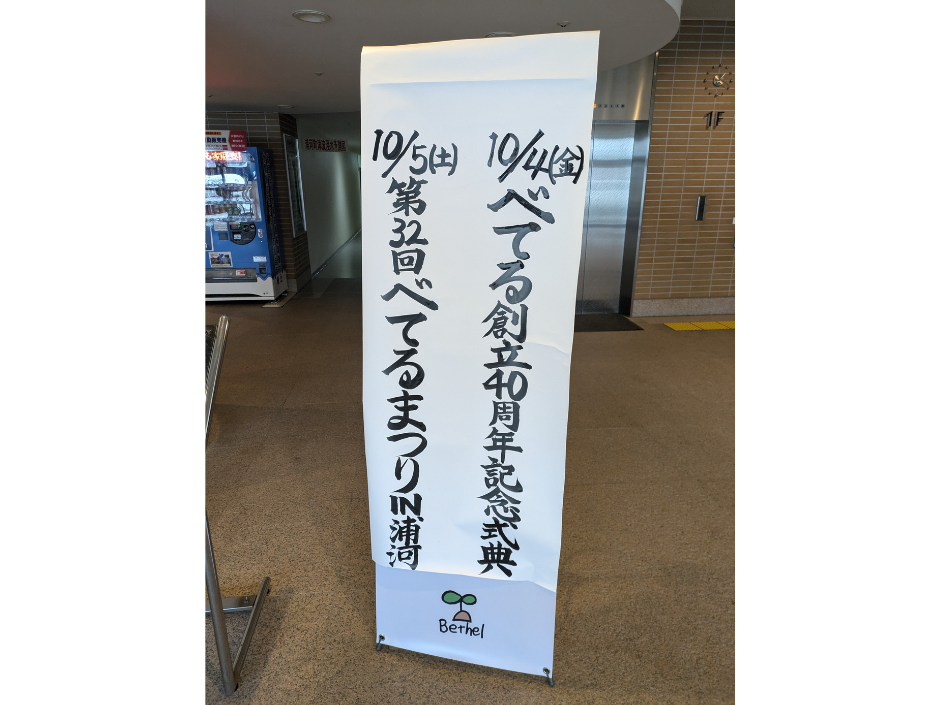 10/4(金)
べてる創立40周年記念式典
10/5(土)
第32回べてるまつりIN浦河
Bethel
1F